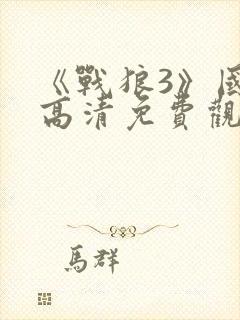 《戰狼3》國
高清免費觀
馬群